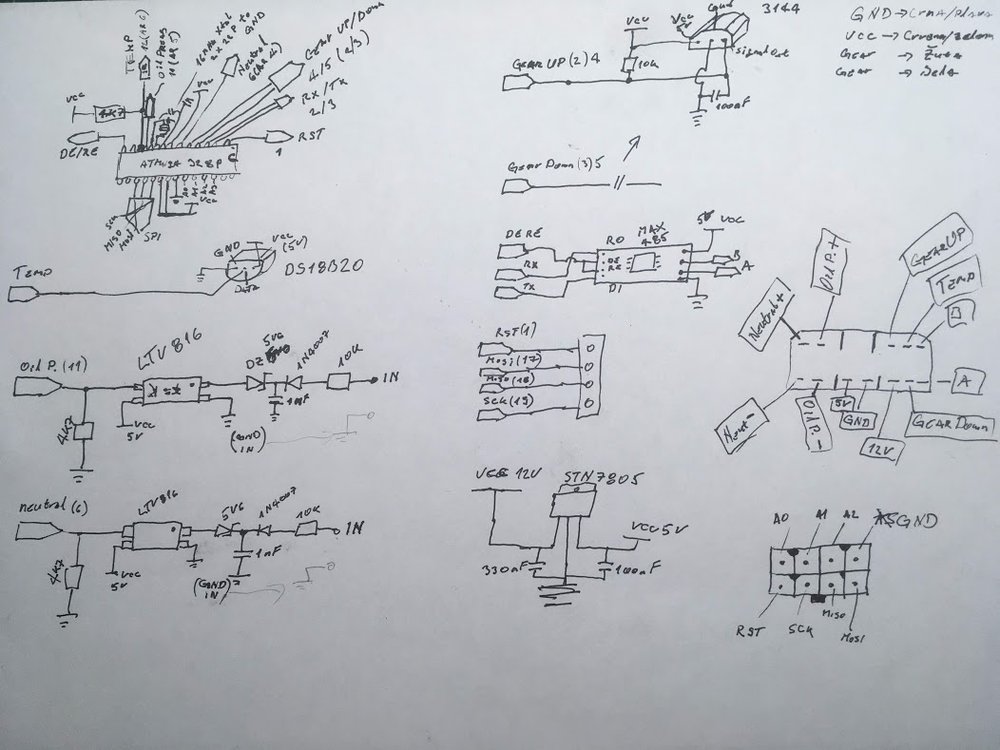 TEMP
12(ARC)
Oil Press
11(AR5)
16MHz xtal
2x22p to
GND
Neutral
Gear UP/Down
4/5 (2/3)
RX/TX
2/3
Vcc
4k7
Vcc
DE/RE
RST
1
ATMEGA 328P
Vcc
SCK
MISO
MOSI
SPI
Vcc
Gnd
3144
Vcc
Signal Out
10k
GEAR UP(2)4
100nF
GND → Crna/plava
Vcc → Crvena/zelena
Gear → Žuta
Gear → Bela
Gear Down(3)5
TEMP
GND
Vcc
(5V)
Data
DS18B20
DE RE
RX
TX
RO
DE
RE
DI
MAX
485
5V VCC
B
A
Oil P.(11)
LTV816
5V6
DZ
1N4007
10K
IN
1nF
4k7
Vcc
5V
(GND)
IN
RST(1)
Mosi(17)
Miso(18)
SCK(19)
Neutral+
Oil P.+
GEARUP
TEMP
B
A
Neut-
Oil P.-
5V
GND
12V
GEAR Down
neutral(6)
LTV816
5V6
1N4007
10k
IN
1nF
4k7
Vcc
5V
(GND)
IN
VCC 12V
STN7805
VCC 5V
330nF
100nF
A0
A1
A2
GND
RST
SCK
Miso
Mosi